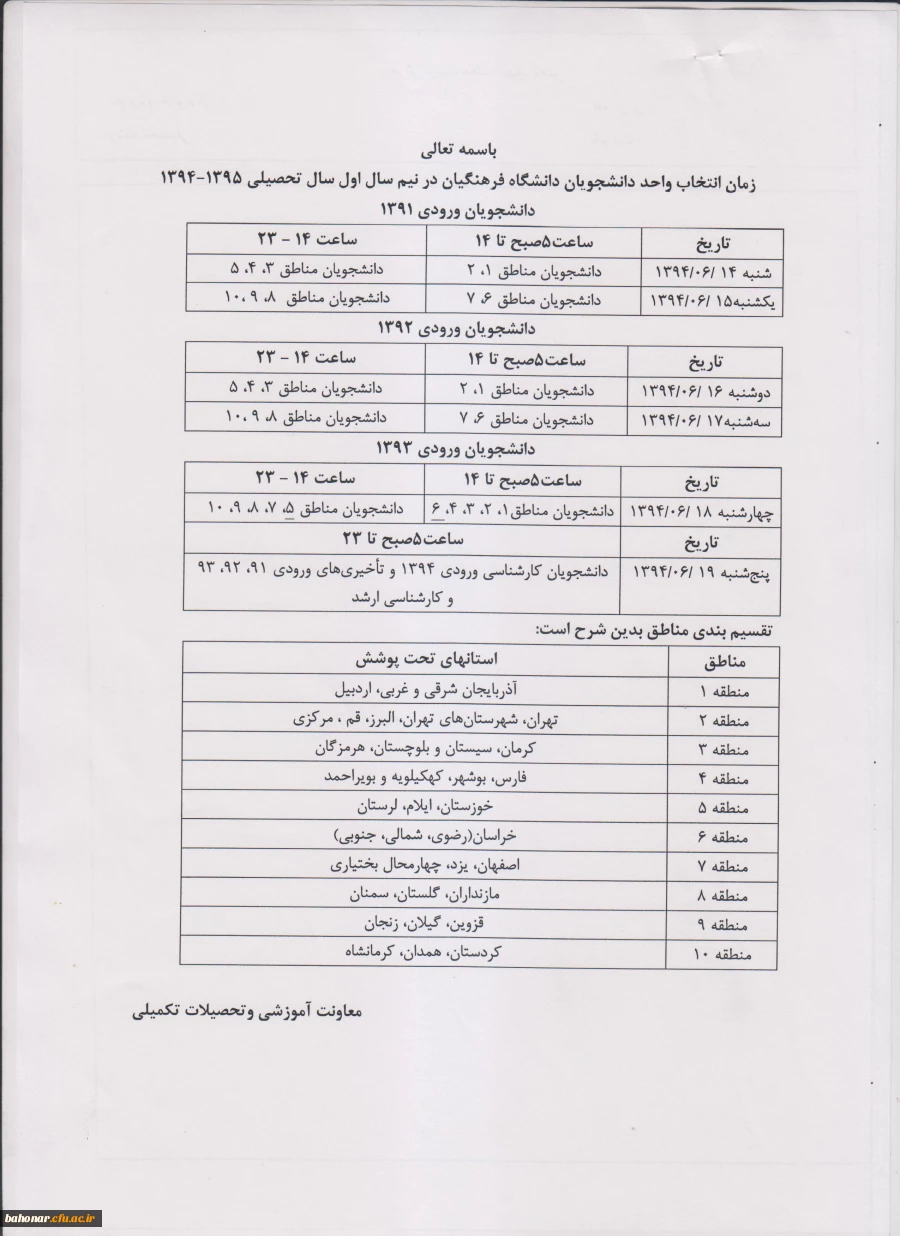 باسمه تعالی
زمان انتخاب واحد دانشجویان دانشگاه فرهنگیان در نیم سال اول سال تحصیلی ۱۳۹۵-۱۳۹۴
دانشجویان ورودی ۱۳۹۱
تاریخ ساعت۵صبح تا ۱۴ ساعت ۱۴ – ۲۳
شنبه ۱۴ /۱۳۹۴/۰۶ دانشجویان مناطق ۱، ۲ دانشجویان مناطق ۳، ۴، ۵
یکشنبه۱۵ /۱۳۹۴/۰۶ دانشجویان مناطق ۶، ۷ دانشجویان مناطق ۸، ۹ ،۱۰
دانشجویان ورودی ۱۳۹۲
تاریخ ساعت۵صبح تا ۱۴ ساعت ۱۴ – ۲۳
دوشنبه ۱۶ /۱۳۹۴/۰۶ دانشجویان مناطق ۱، ۲ دانشجویان مناطق ۳، ۴، ۵
سه‌شنبه۱۷ /۱۳۹۴/۰۶ دانشجویان مناطق ۶، ۷ دانشجویان مناطق ۸، ۹ ،۱۰
دانشجویان ورودی ۱۳۹۳
تاریخ ساعت۵صبح تا ۱۴ ساعت ۱۴ – ۲۳
چهارشنبه ۱۸ /۱۳۹۴/۰۶ دانشجویان مناطق۱، ۲، ۳، ۴، ۶ دانشجویان مناطق ۵، ۷، ۸، ۹، ۱۰
تاریخ ساعت۵صبح تا ۲۳
پنج‌شنبه ۱۹ /۱۳۹۴/۰۶ دانشجویان کارشناسی ورودی ۱۳۹۴ و تأخیری‌های ورودی ۹۱، ۹۲، ۹۳
و کارشناسی ارشد
تقسیم بندی مناطق بدین شرح است:
مناطق استانهای تحت پوشش
منطقه ۱ آذربایجان شرقی و غربی، اردبیل
منطقه ۲ تهران، شهرستان‌های تهران، البرز، قم ، مرکزی
منطقه ۳ کرمان، سیستان و بلوچستان، هرمزگان
منطقه ۴ فارس، بوشهر، کهکیلویه و بویراحمد
منطقه ۵ خوزستان، ایلام، لرستان
منطقه ۶ خراسان(رضوی، شمالی، جنوبی)
منطقه ۷ اصفهان، یزد، چهارمحال بختیاری
منطقه ۸ مازنداران، گلستان، سمنان
منطقه ۹ قزوین، گیلان، زنجان
منطقه ۱۰ کردستان، همدان، کرمانشاه
معاونت آموزشی وتحصیلات تکمیلی
bahonar.cfu.ac.ir